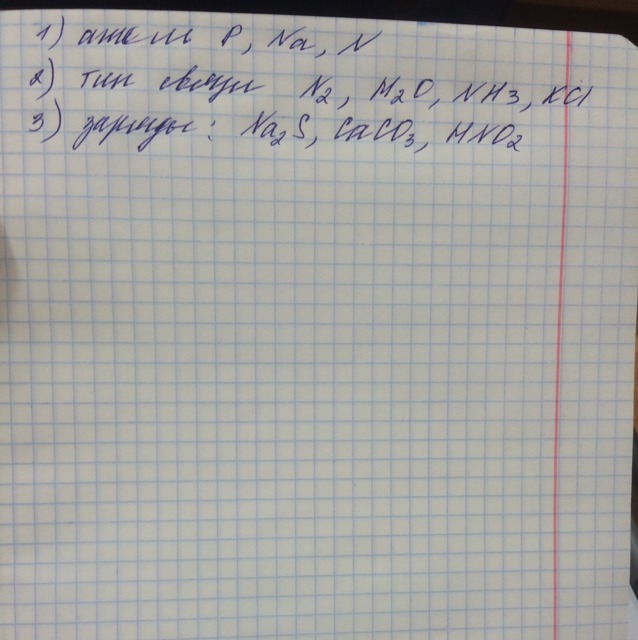 1) атомы P, Na, N
2) тип связи N2, H2O, NH3, KCl
3) заряды: Na2S, CaCO3, HNO2